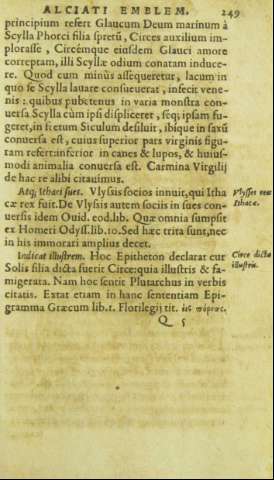 ALCIATI EMBLEM. 249
principium refert Glaucum Deum marinum à
Scylla Phorci filia spretũ, Circes auxilium im-
plorasse, Circémque eiusdem Glauci amore
correptam, illi Scyllæ odium conatam induce-
re. Quod cum minùs assequeretur, lacum in
quo se Scylla lauare consueuerat, infecit vene-
nis: quibus pubetenus in varia monstra con-
uersa Scylla cùm ipsi displiceret, seq; ipsam fu-
geret, in fretum Siculum desiluit, ibique in saxũ
conuersa est, cuius superior pars virginis figu-
ram refert: inferior in canes & lupos, & huius-
modi animalia conuersa est. Carmina Virgilij
de hac re alibi citauimus.
Atq; Ithari sues. Vlysis socios innuit, qui Itha
cæ rex fuit. De Vlysis autem sociis in sues con-
uersis idem Ouid. eod. lib. Quæ omnia sumpsit
ex Homeri Odyss. lib. 10. Sed hæc trita sunt, nec
in his immorari amplius decet.
Vlysses rex
Ithacæ.
Indicat illustrem. Hoc Epitheton declarat cur
Solis filia dicta fuerit Circe: quia illustris & fa-
migerata. Nam hoc sentit Plutarchus in verbis
citatis. Extat etiam in hanc sententiam Epi-
gramma Græcum lib. 1. Florilegij tit. εἰς πόρνας.
Circe dicta
illustris.
Q 5